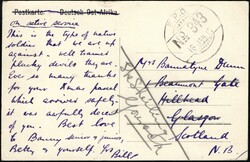 Postkarte - Deutsch Ost-Afrika.
On active service
This is the type of native
soldier that we are up
against & well trained
plucky devils they are.
Ever so many thanks
for your Xmas parcel
which arrived safely.
it was awfully decent
of you. Best love
to Danny senior & junior,
Betty & yourself. Yrs Billy
Mrs Bannatyne Dunn
Beaumont Gate
Hillhead
Glasgow
Scotland
N.B.